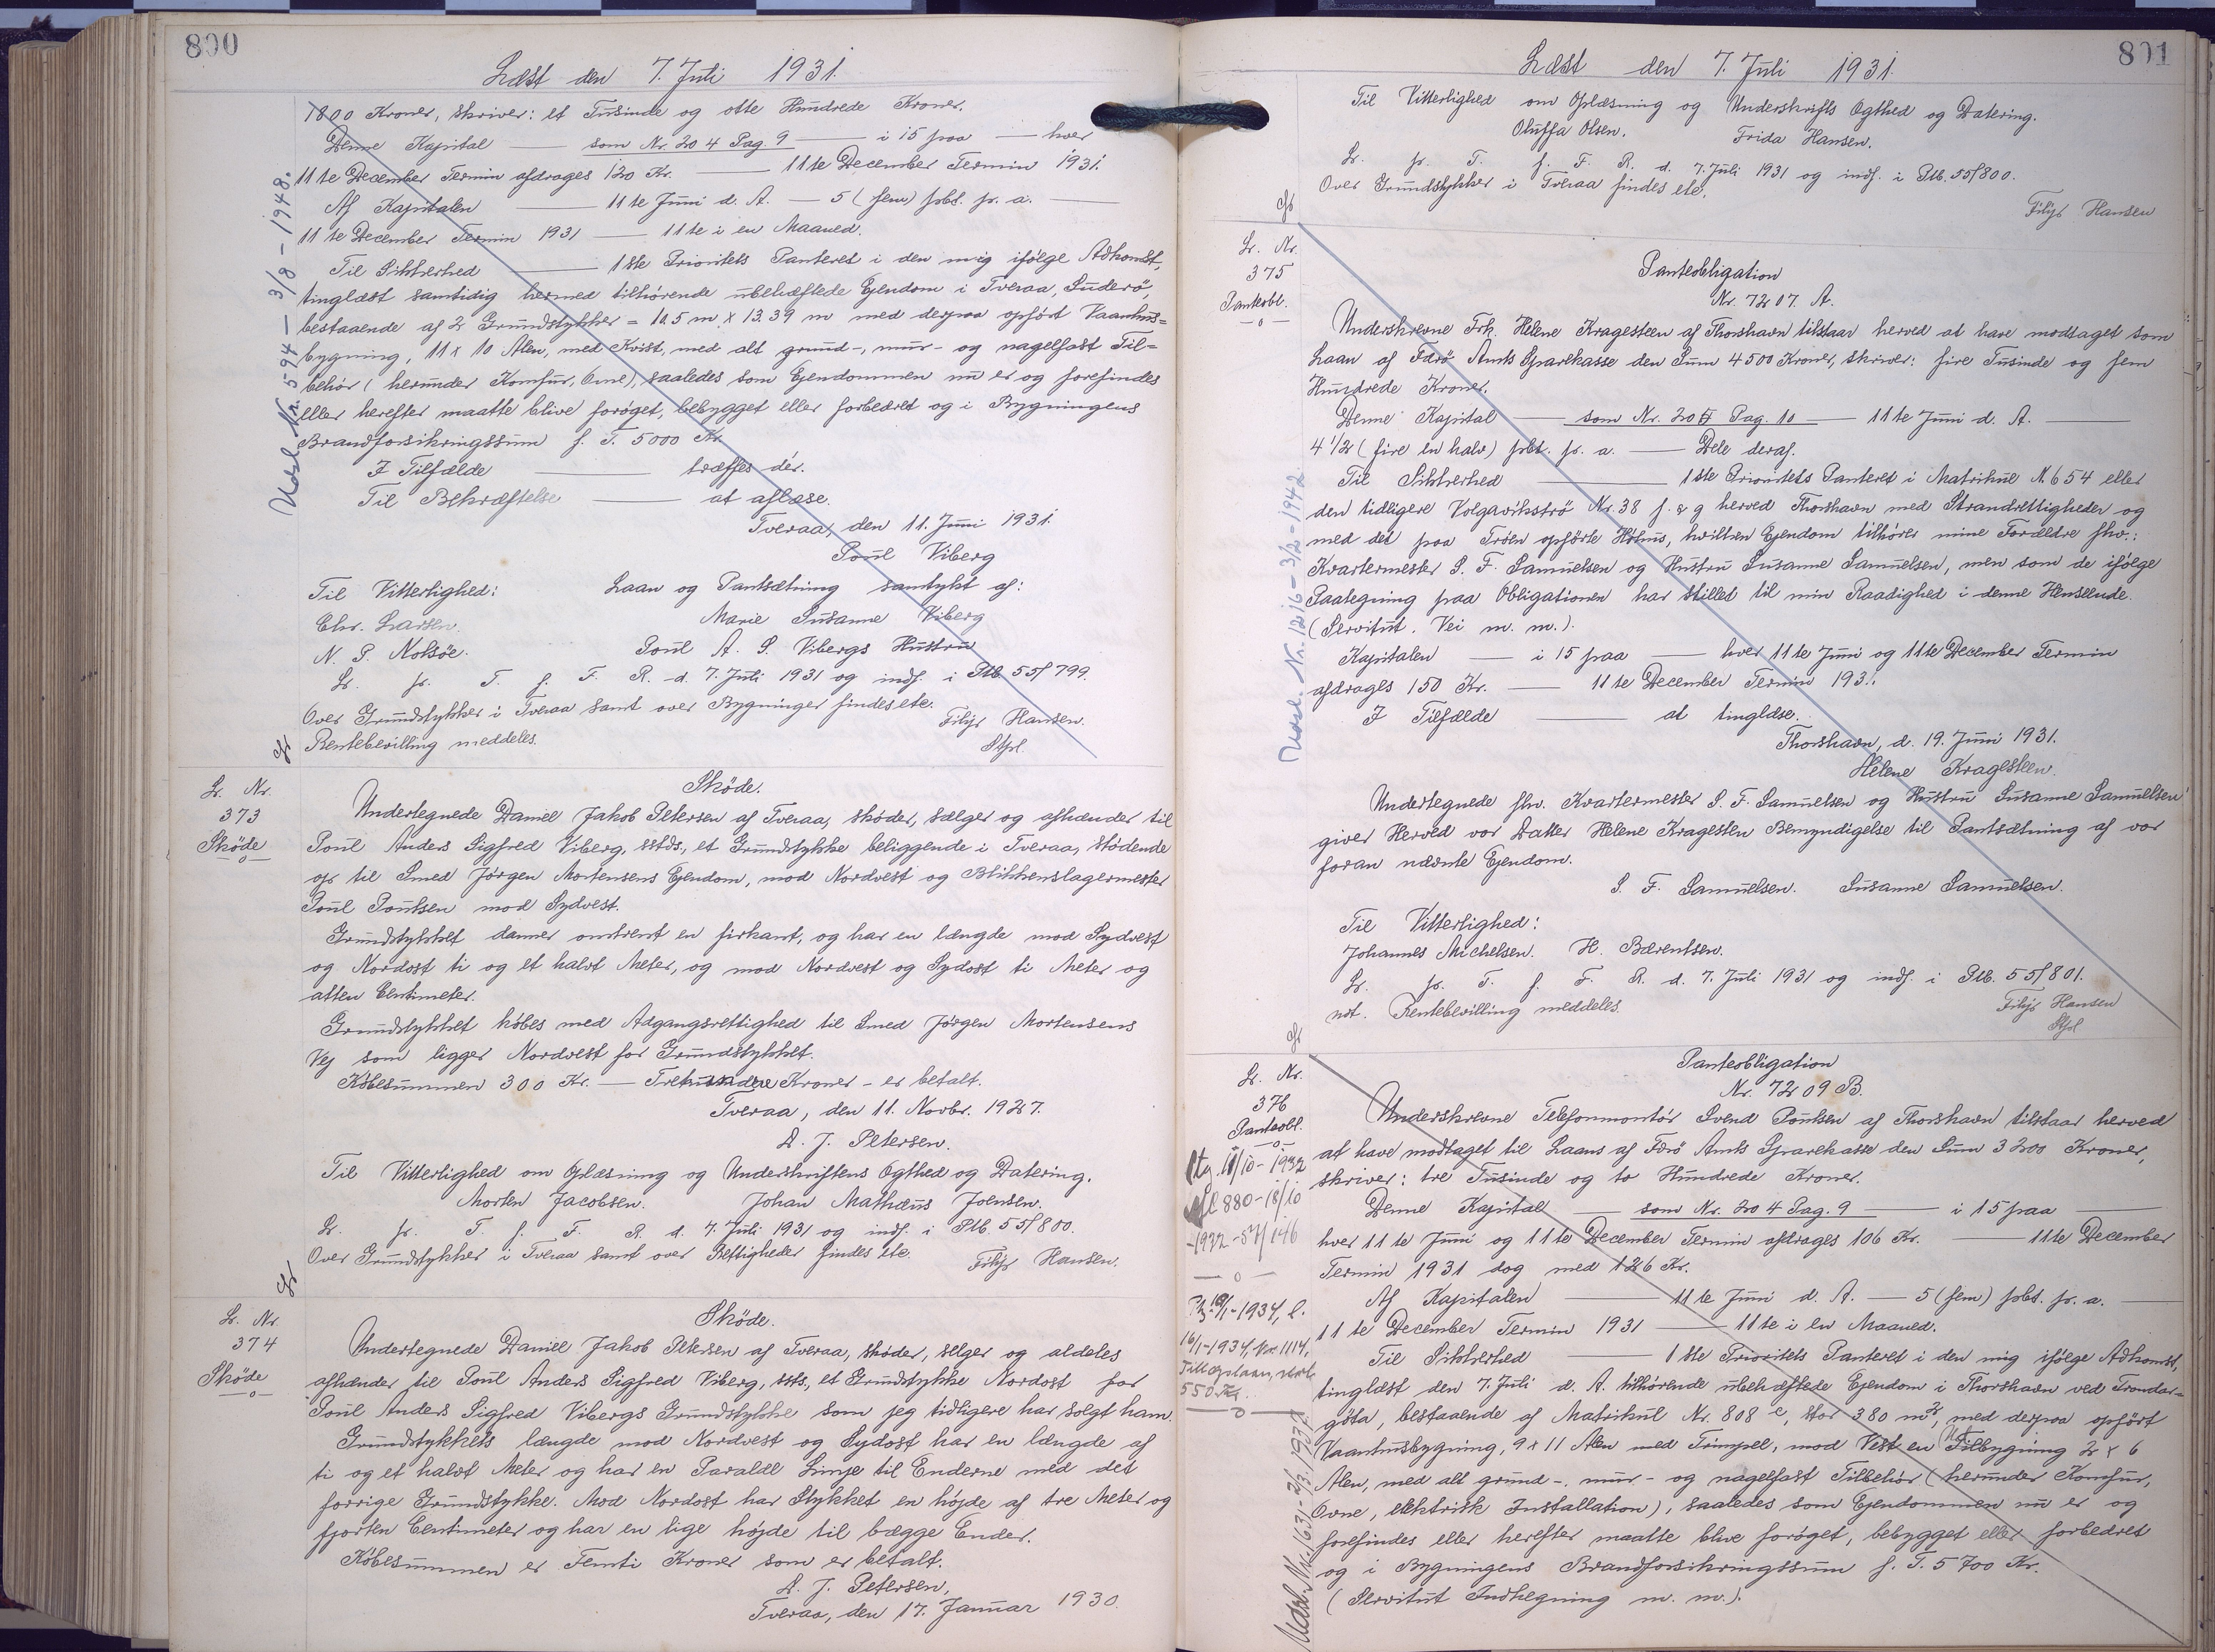 800
Læst den 7. Juli 1931.
1800 Kroner, skriver: et Tusinde og otte Hundrede Kroner.
Denne Kapital — som Nr. 204 Pag. 9 — i 15 paa — hver
11te December Termin afdrages 120 Kr. — 11te December Termin 1931.
Af Kapitalen — 11te Juni d. A. — 5 (fem) pCt. p. a. —
11te December Termin 1931 — 11te i en Maaned.
Til Sikkerhed — 1ste Prioritets Panteret i den mig ifølge Adkomst,
tinglæst samtidig hermed tilhørende ubehæftede Ejendom i Tveraa, Suderø,
bestaaende af 2 Grundstykker = 10.5 m x 13.39 m med derpaa opført Vaanhus=
bygning, 11 x 10 Alen, med Kvist, med alt grund-, mur- og nagelfast Til=
behør (herunder Komfur, Ovne), saaledes som Ejendommen nu er og forefindes
eller herefter maatte blive forøget, bebygget eller forbedret og i Bygningens
Brandforsikringssum f. T. 5000 Kr.
I Tilfælde — træffes dér.
Til Bekræftelse — at aflæse.
Tveraa, den 11. Juni 1931.
Poul Viberg
Til Vitterlighed: Laan og Pantsætning samtykt af:
Chr. Larsen. Marie Susanne Viberg
N. P. Nolsøe. Poul A. S. Vibergs Hustru
L. p. T. f. F. R. d. 7. Juli 1931 og indf. i Ptb. 55/799.
Over Grundstykker i Tveraa samt over Bygninger findes ete.
Filip Hansen.
Rentebevilling meddeles.
Stpl.
Udsl. Nr. 594 - 3/8 - 1948.
L. Nr.
373
Skøde
Skøde.
Undertegnede Daniel Jakob Petersen af Tveraa, skøder, sælger og afhænder til
Poul Anders Sigfred Viberg, sstds., et Grundstykke beliggende i Tveraa, stødende
op til Smed Jørgen Mortensens Ejendom, mod Nordvest og Blikkenslagermester
Poul Poulsen mod Sydvest.
Grundstykket danner omtrent en firkant, og har en længde mod Sydvest
og Nordost ti og et halvt Meter, og mod Nordvest og Sydost ti Meter og
atten Centimeter.
Grundstykket købes med Adgangsrettighed til Smed Jørgen Mortensens
Vej som ligger Nordvest for Grundstykket.
Købesummen 300 Kr. — Trehundre Kroner - er betalt.
Tveraa, den 11. Novbr. 1927.
D. J. Petersen.
Til Vitterlighed om Oplæsning og Underskriftens Ægthed og Datering.
Morten Jacobsen. Johan Mathæus Joensen.
L. p. T. f. F. R. d. 7. Juli 1931 og indf. i Ptb. 55/800.
Over Grundstykker i Tveraa samt over Rettigheder findes ete.
Filip Hansen.
L. Nr.
374
Skøde
Skøde.
Undertegnede Daniel Jakob Petersen af Tveraa, skøder, sælger og aldeles
afhænder til Poul Anders Sigfred Viberg, ssts., et Grundstykke Nordost for
Poul Anders Sigfred Vibergs Grundstykke som jeg tidligere har solgt ham.
Grundstykkets længde mod Nordvest og Sydost har en længde af
ti og et halvt Meter og har en Paralel Linje til Enderne med det
forrige Grundstykke. Mod Nordost har Stykket en højde af tre Meter og
fjorten Centimeter og har en lige højde til bægge Ender.
Købesummen er Femti Kroner som er betalt.
D. J. Petersen,
Tveraa, den 17. Januar 1930.
801
Læst den 7. Juli 1931.
Til Vitterlighed om Oplæsning og Underskrifts Ægthed og Datering.
Oluffa Olsen. Frida Hansen.
L. p. T. f. F. R. d. 7. Juli 1931 og indf. i Ptb. 55/800.
Over Grundstykker i Tveraa findes ete.
Filip Hansen
L. Nr.
375
Panteobl.
Panteobligation
Nr. 7207. A.
Underskrevne Frk. Helene Kragesteen af Thorshavn tilstaar herved at have modtaget som
Laan af Færø Amts Sparekasse den Sum 4500 Kroner, skriver: fire Tusinde og fem
Hundrede Kroner.
Denne Kapital — som Nr. 205 Pag. 10 — 11te Juni d. A. —
4 1/2 (fire en halv) pCt. p. a. — Dele deraf.
Til Sikkerhed — 1ste Prioritets Panteret i Matrikul N. 654 eller
den tidligere Volgavikstrø Nr. 38 f. & g herved Thorshavn med Strandrettigheder og
med det paa Trøen opførte Hus, hvilken Ejendom tilhører mine Forældre fhv.:
Kvartermester S. F. Samuelsen og Hustru Susanne Samuelsen, men som de ifølge
Paategning paa Obligationen har stillet til min Raadighed i denne Henseende.
(Servitut. Vei m. m.).
Kapitalen — i 15 paa — hver 11te Juni og 11te December Termin
afdrages 150 Kr. — 11te December Termin 193..
I Tilfælde — at tinglæse.
Thorshavn, d. 19. Juni 1931.
Helene Kragesteen.
Undertegnede fhv. Kvartermester S. F. Samuelsen og Hustru Susanne Samuelsen
giver Herved vor Datter Helene Kragesten Bemyndigelse til Pantsætning af vor
foran nævnte Ejendom.
S. F. Samuelsen. Susanne Samuelsen.
Til Vitterlighed:
Johannes Michelsen. H. Bærentsen.
L. p. T. f. F. R. d. 7. Juli 1931 og indf. i Ptb. 55/801.
not. Rentebevilling meddeles.
Filip Hansen
Stpl
Udsl. Nr. 1216 - 3/2 - 1942
L. Nr.
376
Panteobl.
Panteobligation
Nr. 7209 B.
Underskrevne Telefonmontør Svend Poulsen af Thorshavn tilstaar herved
at have modtaget til Laans af Færø Amts Sparekasse den Sum 3200 Kroner,
skriver: tre Tusinde og to Hundrede Kroner.
Denne Kapital — som Nr. 204 Pag. 9 — i 15 paa —
hver 11te Juni og 11te December Termin afdrages 106 Kr. — 11te December
Termin 1931 dog med 126 Kr.
Af Kapitalen — 11te Juni d. A. — 5 (fem) pCt. p. a. —
11te December Termin 1931 — 11te i en Maaned.
Til Sikkerhed — 1ste Prioritets Panteret i den mig ifølge Adkomst,
tinglæst den 7. Juli d. A. tilhørende ubehæftede Ejendom i Thorshavn ved Trondar=
gøta, bestaaende af Matrikul Nr. 808 e, stor 380 m², med derpaa opført
Vaanhusbygning, 9 x 11 Alen med Timpel, mod Vest en Tilbygning 2 x 6
Alen, med alt grund-, mur- og nagelfast Tilbehør (herunder Komfur,
Ovne, elektrisk Installation), saaledes som Ejendommen nu er og
forefindes eller herefter maatte blive forøget, bebygget eller forbedret
og i Bygningens Brandforsikringssum f. T. 5700 Kr.
(Servitut Indhegning m. m.).
880 - 18/10
-1932 - 57/146
16/1-1934, Nr. 1114,
Tillægslaan, stort
550 Kr.